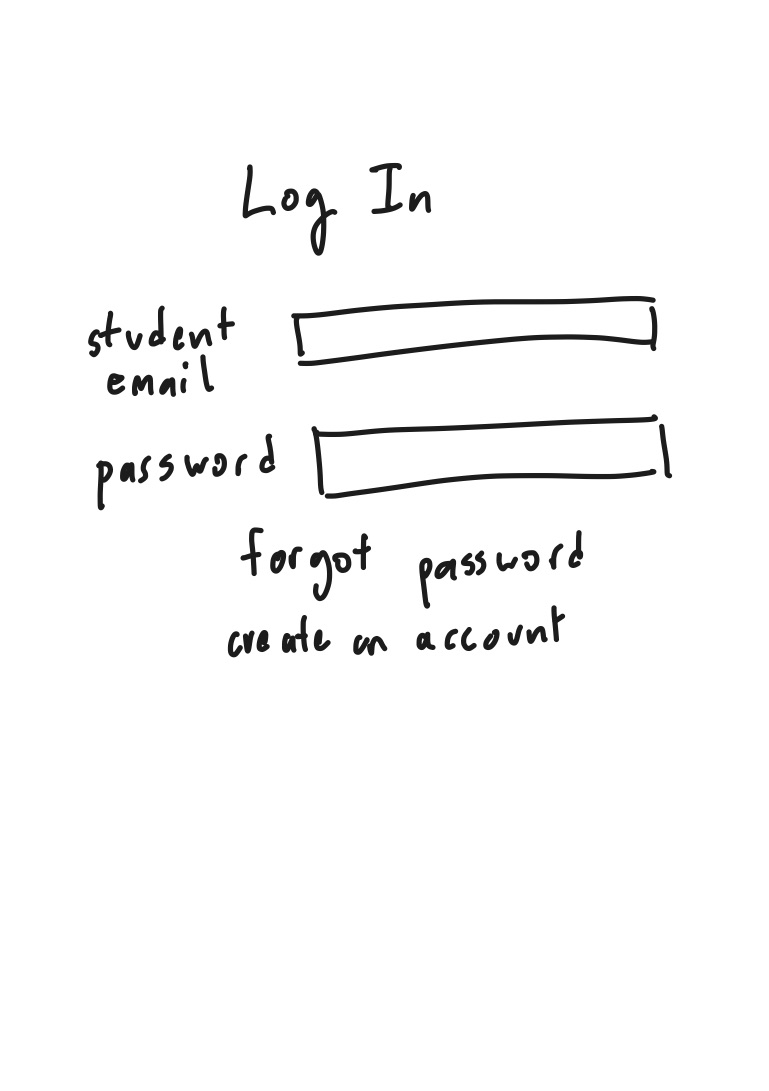 Log In
student
email
password
forgot password
create an account